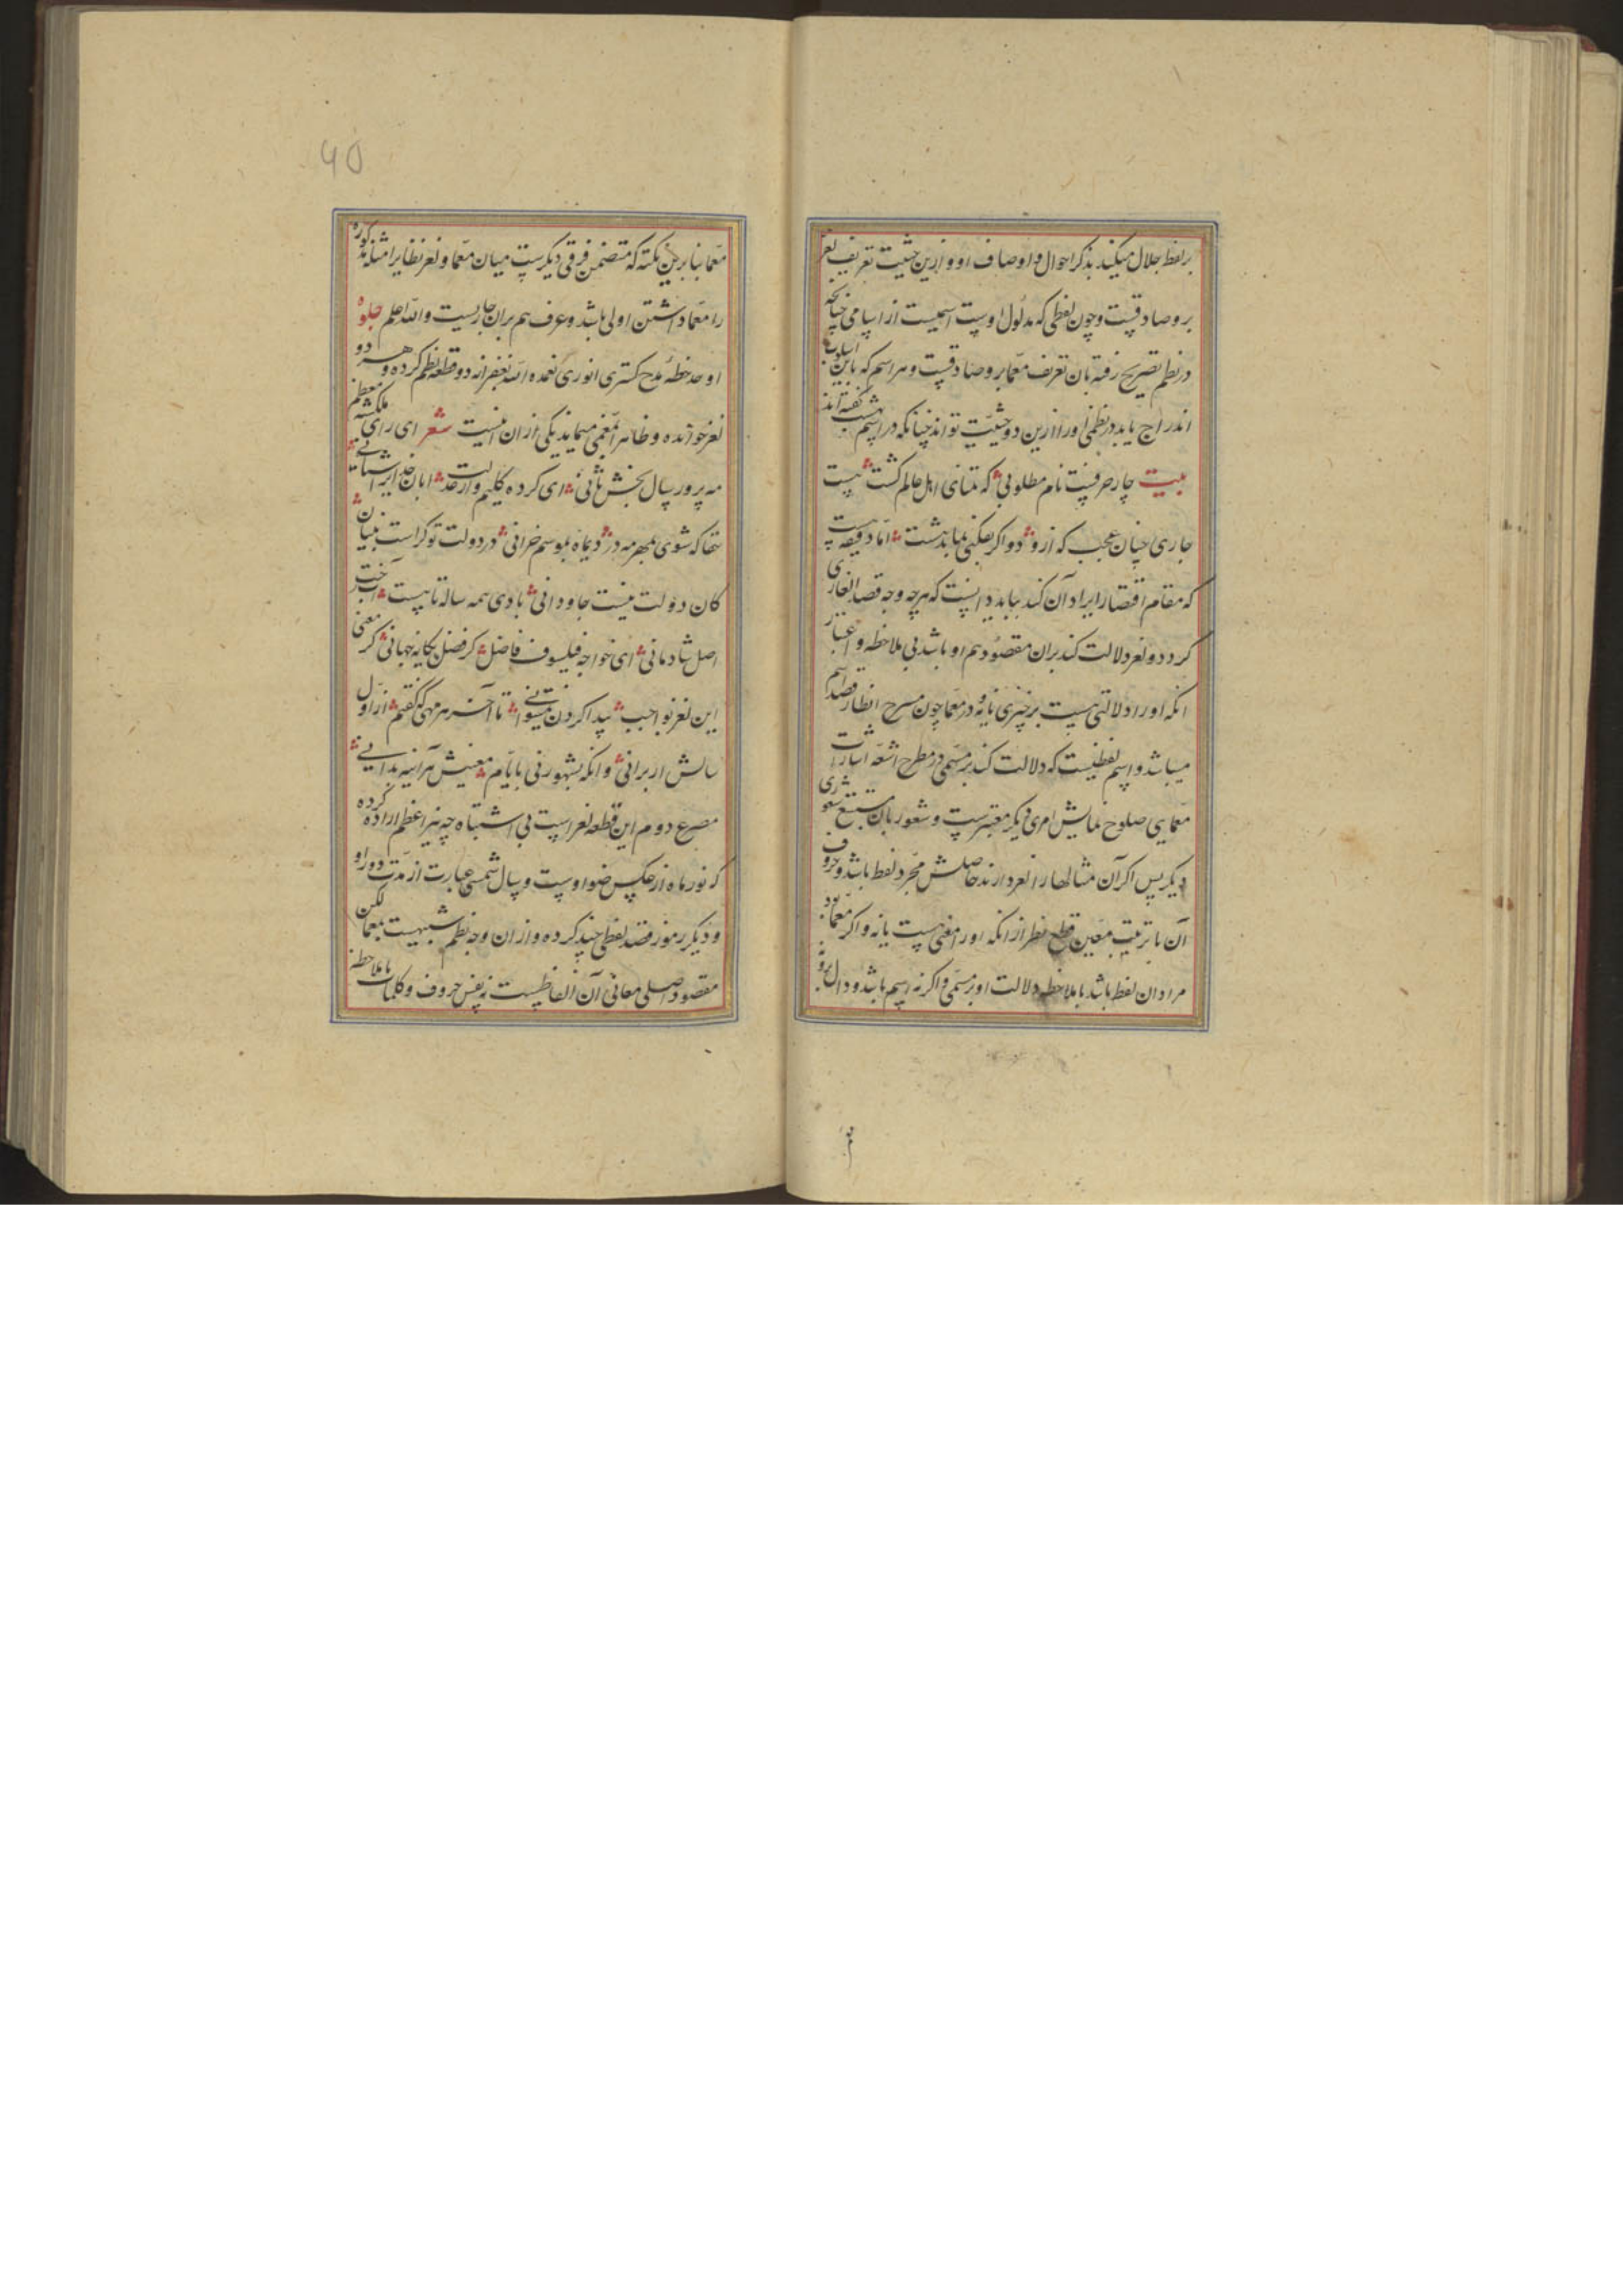 بر لفظ جلال میکند بذکر احوال و اوصاف او و ازین حیثیت تعریف لغز
بر و صادقست و چون لفظی که مدلول اوست اسمیست از اسامی چنانچه
در نظم تصریح رفته بان تعریف معما برو صادقست و هر اسم که باین اسلوب
اندراج یابد در نظمی او را ازین دو حیثیت تواند چنانکه در اسم بهشت گفته اند
بیت چار حرفست نام مطلوبی که تمنای اهل عالم گشت نیست
جاری چنان عجب که ازو دو اگر بفکنی بماند هشت اما دقیقه هست
که مقام اقتضار ایراد آن کند بباید دانست که هرچه وجه قصد الغازی
گردد و لغز دلالت کند بران مقصود هم او باشد بی ملاحظه و اعتبار
انکه او را دلالتی هست بر چیزی یا نه و در معما چون مسرح انظار قصد اسم
میباشد و اسم لفظیست که دلالت کند بر مسمی در مطرح اشعه اشارات
معمایی صلوح نمایش امری دیگر معتبرست و شعور بان مستتبع شعوری
دیگر پس اگر آن مثالها را لغز دارند حاصلش مجرد لفظ باشد و حروف
آن با ترتیب معین قطع نظر از انکه او را معنی هست یا نه و اگر معما بود
مراد ان لفظ باشد با ملاحظه دلالت او بر مسمی و اگر نه اسم باشد و دال برو
معما بنا برین نکته که متضمن فرقی دیگرست میان معما و لغز نظایر امثله مذکوره
را معما داشتن اولی باشد و عرف هم بران جاریست والله اعلم جلوه
اوحد خطه مدح گستری انوری تغمده الله بغفرانه دو قطعه نظم کرده و هر دو
لغز خوانده و ظاهرا معمی مینماید یکی از ان اینست شعر ای رای ملکشه معظم
مه پرور سال بخش ثانی ای کرده کلیم وار عدلت ابان خدا را شبانی
حقا که شوی بمهر مه در دیماه بموسم خزانی در دولت تو کراست بنیان
کان دولت نیست جاودانی بادی همه ساله تا بیست آبخت
اصل شادمانی ای خواجه فیلسوف فاضل کز فضل یگانه جهانی گر معنی
این لغز بواجب پیدا کردن نمیتوانی تا آخر هر مهی که گفتم از اول
سالش ار برانی وانکه بشهور نی بایام معنیش هر آینه بدانی
مصرع دوم این قطعه لغز است بی اشتباه چه نیر اعظم اراده کرده
که نور ماه از عکس ضوء اوست و سال شمسی عبارت از مدت دور او
و دیگر رموز قصد لفظی چند کرده و از ان وجه نظم شبیهست بمعما لکن
مقصود اصلی معانی آن الفاظست نه نفس حروف و کلمات با ملاحظه